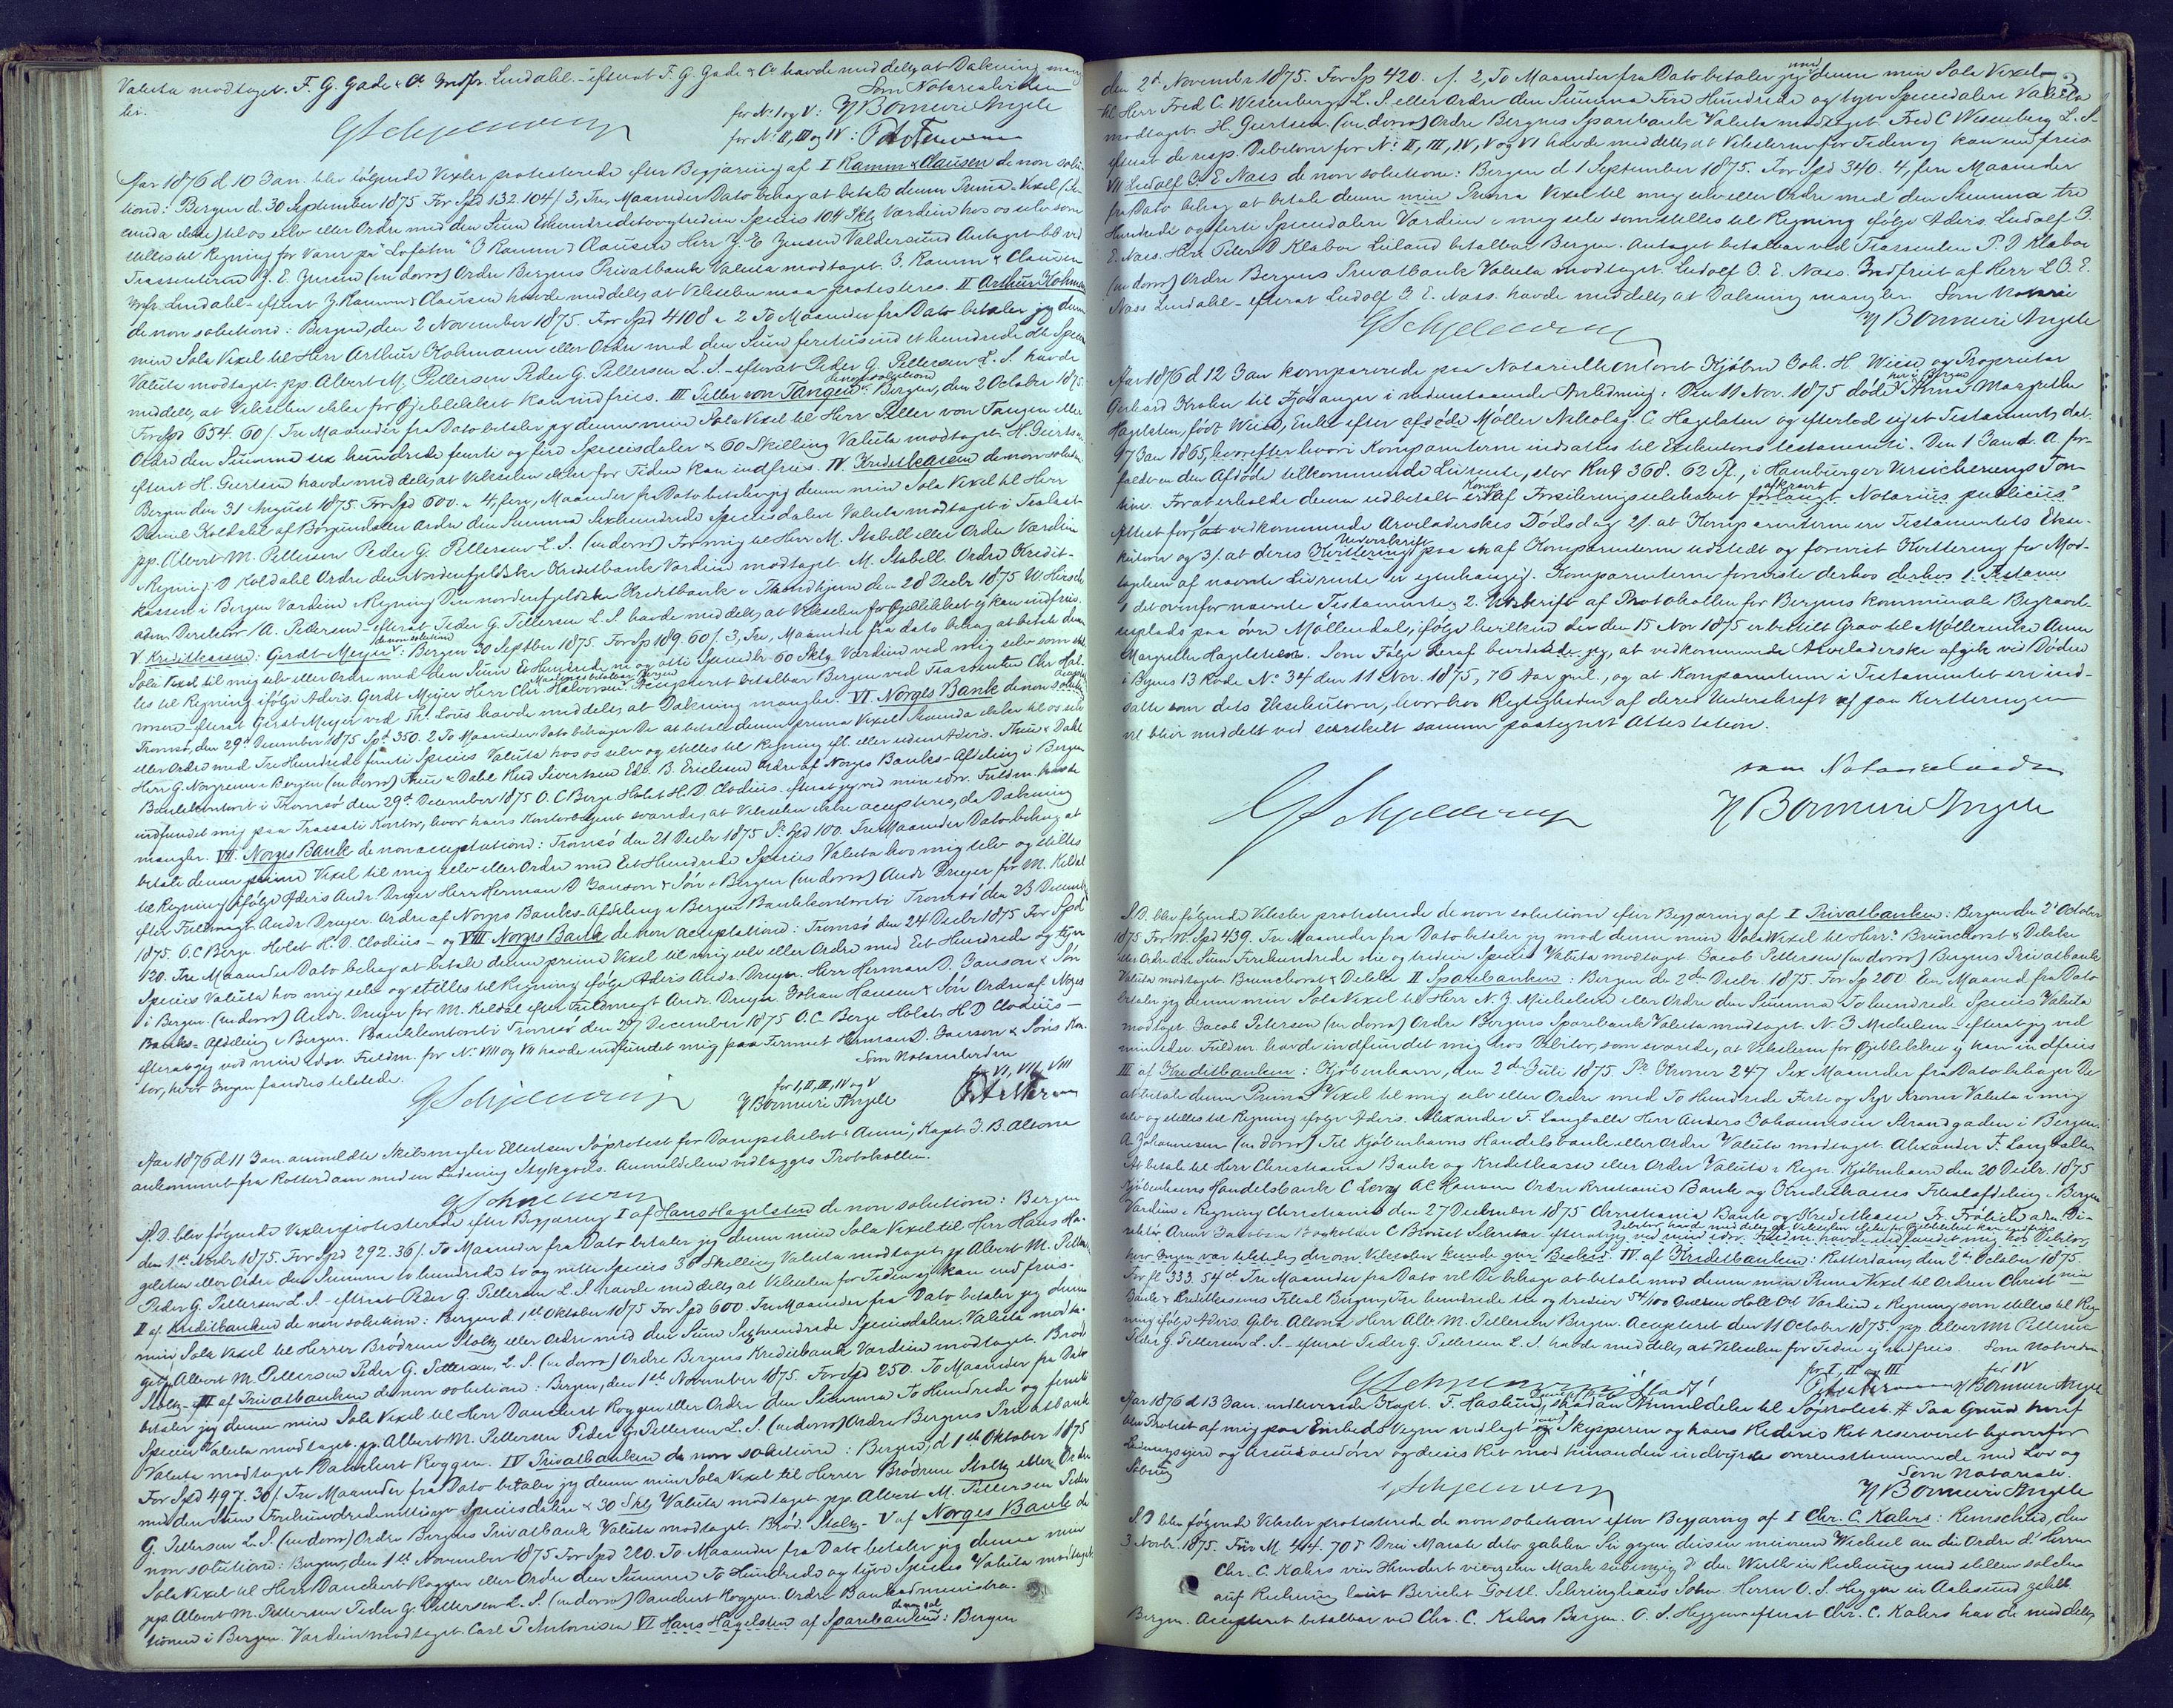 Valuta modtaget. F. G. Gade & Co Indfr. Lindahl. - efterat F. G. Gade & Co havde meddelt, at Dækning mang
ler.
Som Notarialvidne
for No I og V: H Bonnevie Angell
for N. II, III og IV:
Aar 1876 d. 10 Jan. blev følgende Vexler protesterede efter Begjæring af I Ramm & Clausen de non solu-
tione: Bergen d. 30 September 1875 For Spd 132. 104/ 3, Tre, Maaneder Dato behag at betale denne Prima-Vexel (Se-
cunda ikke) til os selv eller Ordre med den Sum Ethundredetoogtredive Species 104 Skl, Værdien hos os selv som
stilles til Regning for Varer pr "Lofoten" J Ramm & Clausen Herr J. E. Jensen Valdersund Antaget bet. ved
Trassenten J. E. Jensen (in dorso) Ordre Bergens Privatbank Valuta modtaget. J. Ramm & Clausen
Indfr. Lindahl - efterat J. Ramm & Clausen havde meddelt, at Vekselen maa protesteres. II Arthur Kohmann
de non solutione: Bergen, den 2 November 1875. For Spd 4108 a 2 To Maaneder fra Dato betaler jeg denne
min Sola Vexel til Herr Arthur Kohmann eller Ordre med den Sum firetusind et hundrede otte Species
Valuta modtaget. pp. Albert M. Pettersen Peder G. Pettersen L. S. - efterat Peder G. Pettersen L. S. havde
meddelt, at Vekselen ikke for Øieblikket kan indfries. III Peller von Tangen de non solutione: Bergen, den 2 October 1875.
For Spd 654. 60/. Tre Maaneder fra Dato betaler jeg denne min Sola Vexel til Herr Peller von Tangen eller
Ordre den Summa sex hundrede femti og fire Speciesdaler & 60 Skilling Valuta modtaget H. Geertsen
efterat H. Geertsen havde meddelt, at Vekselen ikke for Tiden kan indfries. IV Kreditkassen de non solutione
Bergen den 31 August 1875. For Spd 600. a 4, fire, Maaneder fra Dato betaler jeg denne min Sola Vexel til Herr
Daniel Koldahl af Borgund eller Ordre den Summa Sexhundrede Speciesdaler Valuta modtaget i
pp. Albert M. Pettersen Peder G. Pettersen L. S. (in dorso) For mig til Herr M. Stabell eller Ordre Værdien
i Regning. D Koldahl Ordre den Nordenfjeldske Kreditbank Værdien modtaget. M. Stabell. Ordre Kredit-
kassen i Bergen Værdien i Regning Den nordenfjeldske Kreditbank i Throndhjem den 28 Decbr 1875 W. Hirsch
adm. Direktør /A. Pedersen - efterat Peder G. Pettersen L. S. havde meddelt, at Vekselen for Øieblikket ej kan indfries.
V Kreditkassen: Gerdt Meyer de non solutione: Bergen 30 Septbr 1875. For Sp 189. 60/. 3, Tre, Maaneder fra dato behag at betale denne
Sola Vexel til mig selv eller Ordre med den Sum Et Hundrede ni og otti Speciedlr 60 Sktg. Værdien ved mig selv som stil-
les til Regning ifølge Advis. Gerdt Meyer Herr Chr Halvorsen Accepteret betalbar Bergen ved Trassenten Chr. Hal-
vorsen - efterat Gerdt Meyer ved Th. Lous havde meddelt, at Dækning mangler. VI Norges Bank de non solutione
Tromsø, den 29de December 1875 Spd 350. 2 To Maaneder Dato behager De at betale denne prima Vexel Secunda ikke til os selv
eller Ordre med Tre Hundrede femti Species Valuta hos os selv og stilles til Regning efl. eller uden Advis. Huu & Dahl
Herr G. Norgreen i Bergen (in dorso) Huu & Dahl Knud Sivertsen Edv. B. Erichsen Ordre af Norges Banks-Afdeling i Bergen
Bankkontoret i Tromsø den 29de December 1875 O. C. Berge. Holst H. D. Clodius. efterat jeg ved min edsv. Fuldm. havde
indfundet mig paa Trassati Kontor, hvor hans Kontorbetjent svarede, at Vekselen ikke accepteres, da Dækning
mangler. VII. Norges Bank de non acceptatione: Tromsø den 21 Decbr 1875 Pr Spd 100. Tre Maaneder Dato behag at
betale denne prima Vexel til mig selv eller Ordre med Et Hundrede Species Valuta hos mig selv og stilles
til Regning ifølge Advis Andr. Dreyer Herr Herman D Janson & Søn i Bergen (in dorso) Andr Dreyer for M. Kildal
efter Fuldmagt Andr. Dreyer. Ordre af Norges Banks-Afdeling i Bergen Bankkontoret i Tromsø den 23 December
1875. O. C. Berge. Holst H. D. Clodius - og VIII Norges Bank de non acceptatione: Tromsø den 24 Decbr 1875 For Spd
120. Tre Maaneder Dato behag at betale denne prima Vexel til mig selv eller Ordre med Et Hundrede og tyve
Species Valuta hos mig selv og stilles til Regning ifølge Advis Andr. Dreyer. Herr Herman D. Janson & Søn
i Bergen. (in dorso) Andr. Dreyer for M. Kildal efter Fuldmagt Andr. Dreyer. Johan Hansen & Søn Ordre af Norges
Banks-Afdeling i Bergen. Bankkontoret i Tromsø den 27 December 1875 O. C. Berge Holst H. D Clodius -
efterat jeg ved min edsv. Fuldm. for No VIII og VII havde indfundet mig paa Firmaet Herman D. Janson & Søns Kon-
tor, hvor Ingen fandtes tilstede.
Som Notarialvidne
for I, II, III, IV og V
H Bonnevie Angell
for VI, VII, VIII
Aar 1876 d 11 Jan. anmeldte Skibsmægler Ellertsen Søprotest for Dampskibet "Anna", Kapt. J. B. Altona
ankommet fra Rotterdam med en Ladning Stykgods. Anmeldelsen vedlægges Protokollen.
S. D. blev følgende Vexler protesterede efter Begjæring I af Hans Hagelsten de non solutione: Bergen
den 1ste Novbr 1875. For Spd 292. 36/. To Maaneder fra Dato betaler jeg denne min Sola Vexel til Herr Hans Ha-
gelsten eller Ordre den Summa to hundrede to og nitti Species 36 Skilling Valuta modtaget pp Albert M. Pettersen
Peder G. Pettersen L. S. - efterat Peder G. Pettersen L. S. havde meddelt, at Vekselen for Tiden ej kan indfries -
II af Kreditbanken de non solutione: Bergen d. 1ste Oktober 1875 For Spd 600. Tre Maaneder fra Dato betaler jeg denne
min Sola Vexel til Herrer Brødrene Stoltz eller Ordre med den Sum Sexhundrede Speciesdaler. Valuta modta-
get pp Albert M. Pettersen Peder G. Pettersen, L. S. (in dorso) Ordre Bergens Kreditbank Værdien modtaget. Brød.
Stoltz - III af Privatbanken de non solutione: Bergen, den 1ste November 1875. For Spd 250. To Maaneder fra Dato
betaler jeg denne min Sola Vexel til Herr Danckert Roggen eller Ordre den Summa To Hundrede og femti
Species Valuta modtaget. pp. Albert M. Pettersen Peder G. Pettersen L. S. (in dorso) Ordre Bergens Privatbank
Valuta modtaget Danckert Roggen. IV Privatbanken de non solutione: Bergen, d 1ste Oktober 1875
For Spd 497. 30/. Tre Maaneder fra Dato betaler jeg denne min Sola Vexel til Herrer Brødrene Stoltz eller Ordre
med den Sum Firehundredenittisyv Speciesdaler & 30 Skl Valuta modtaget. pp. Albert M. Pettersen Peder
G. Pettersen L. S. (in dorso) Ordre Bergens Privatbank Valuta modtaget. Brød. Stoltz - V af Norges Bank de
non solutione: Bergen, den 1ste November 1875 For Spd 220. To Maaneder fra Dato betaler jeg denne min
Sola Vexel til Herr Danckert Roggen eller Ordre den Summa To Hundrede og tyve Species Valuta modtaget.
pp. Albert M. Pettersen Peder G. Pettersen L. S. (in dorso) Danckert Roggen. Ordre Bankadministra-
tionen i Bergen. Værdien modtaget. Carl D Antonisen VI Hans Hagelsten af Sparebanken de non sol: Bergen
den 2d November 1875. For Sp 420. /. 2, To Maaneder fra Dato betaler jeg mod denne min Sola Vexel
til Herr Fred C. Wesenberg L. S. eller Ordre den Summa Fire Hundrede og tyve Speciedaler Valuta
modtaget. H. Geertsen. (in dorso) Ordre Bergens Sparebank Valuta modtaget Fred C Wesenberg L. S. -
efterat de resp. Debitorer for No II, III, IV, V og VI havde meddelt, at Vekslerne for Tiden ej kan indfries.
VII Ludolf J. E Nass de non solutione: Bergen d 1 September 1875. For Spd 340. 4, fire Maaneder
fra Dato behag at betale denne min Prima Vexel til mig selv eller Ordre med den Summa tre
Hundrede og førti Speciedaler Værdien i mig selv som stilles til Regning ifølge Advis. Ludolf J.
E. Nass. Herr Peder D Klaboe Leiland betalbar Bergen. Antaget betalbar ved Trassenten P. D Klaboe
(in dorso) Ordre Bergens Privatbank Valuta modtaget. Ludolf J. E. Nass. Indfriet af Herr L J. E.
Nass Lindahl - efterat Ludolf J. E. Nass. havde meddelt, at Dækning mangler. Som Notari
H Bonnevie Angell
Aar 1876 d 12 Jan komparerede paa Notarialkontoret Kjøbmd Joh. H. Wiese og Proprietær
Gerhard Krohn til Fjøsanger i nedenstaaende Anledning: Den 11 Nov. 1875 døde her i Bergen Anna Margrethe
Hagelsten, født Wiese, Enke efter afdøde Møller Nikolay C. Hagelsten og efterlod sig et Testament, dat.
17 Jan 1865, hvorefter hvori Komparenterne indsattes til Exekutores testamenti. Den 1 Jan d. A. for-
faldt en den Afdøde tilkommende Livrente, stor Rmk 368. 62 Pf., i Hamburger Versicherungs Ton-
tine. For at erholde denne udbetalt er Komp. af Forsikringsselskabet afkrævet forlangt Notarius publicus'
Attest for, at vedkommende Arveladerskes Dødsdag 2/. at Komparenterne ere Testamentets Ekse-
kutorer og 3/. at deres Underskrift paa en af Komparenterne udstedt og forevist Kvittering for Mod-
tagelsen af nævnte Livrente er egenhændig. Komparenterne foreviste derhos derhos 1. Testame
1 det ovenfornævnte Testamente, 2. Udskrift af Protokollen for Bergens kommunale Begravel-
sesplads paa øvre Møllendal, ifølge hvilken der den 15 Nov 1875 er bestilt Grav til Møllerenke Anna
Margrethe Hagelsten. Som Følge heraf bevidner jeg, at vedkommende Arveladerske afgik ved Døden
i Byens 13 Rode No 34 den 11 Nov. 1875, 76 Aar gml., og at Komparenterne i Testamentet ere ind-
satte som dets Eksekutorer, hvorhos Rigtigheden af deres Underskrift paa Kvitteringen
vil blive meddelt ved særskilt samme paategnet Attestation.
som Notarialvidne
H Bonnevie Angell
S. D. blev følgende Veksler protesterede de non solutione efter Begjæring af I Privatbanken: Bergen den 2d October
1875. For N. Spd 439. Tre Maaneder fra Dato betaler jeg mod denne min Sola Vexel til Herr. Brunchorst & Dekke
eller Ordre den Sum Firehundrede nie og tredive Species Valuta modtaget. Jacob Pettersen (in dorso) Bergens Privatbank
Valuta modtaget. Brunchorst & Dekke II Sparebanken: Bergen de 2den Decbr. 1875. For Sp 200. Een Maaned fra Dato
betaler jeg denne min Sola Vexel til Herr N. J Michelsen eller Ordre den Summa To hundrede Species Valuta
modtaget. Jacob Petersen (in dorso) Ordre Bergens Sparebank Valuta modtaget. N. J Michelsen - efterat jeg ved
min edsv. Fuldm. havde indfundet mig hos Debitor, som svarede, at Vekslerne for Øjeblikket ej kan indfries
III af Kreditbanken: Kjøbenhavn, den 2den Juli 1875. Pr Kroner 247 Sex Maaneder fra Dato behager De
at betale denne Prima Vexel til mig selv eller Ordre med To Hundrede Førte og Syv Kroner Valuta i mig
selv og stilles til Regning ifølge Advis. Alexander F. Langballe Herr Anders Johannesen Strandgaden i Bergen.
A. Johannesen (in dorso) Til Kjøbenhavns Handelsbank eller Ordre Valuta modtaget. Alexander F. Langballe
At betale til Herr Christiania Bank og Kreditkasse eller Ordre Valuta i Regn. Kjøbenhavn den 20 Decbr. 1875
Kjøbenhavns Handelsbank C Levy A C Ordre Kristiania Bank og Kreditkasses Filialafdeling i Bergen
Værdien i Regning Christiania den 27 December 1875 Christiania Bank og Kreditkasse Fr. Frølich adm. Di-
rektør, Arne Jacobsen Bogholder C Sekretær. efterat jeg ved min edsv. Fuldm. havde indfundet mig hos Debitor,
Debitor havde meddelt, at Vekselen ikke for Øjeblikket kan indfries
hvor Ingen var tilstede, der om Vekselen kunde give Besked IV af Kreditbanken: Rotterdam, den 2de October 1875.
For fl 333. 54 ct Tre Maaneder fra Dato vil De behage at betale mod denne min Prima Vexel til Ordren Christ nia
Bank & Kreditkassens Filial Bergen, Tre hundrede tre og tredive 54/100 Gulden Holl Crt Værdien i Regning som stilles til Reg-
ning ifølge Advis. Gebr. Altona Herr Alb. M. Pettersen Bergen. Accepteret den 11 October 1875. pp. Albert M Pettersen
Peder G. Pettersen L. S. - efterat Peder G. Pettersen L. S. havde meddelt, at Vekselen for Tiden ej indfries. Som Notvidne
for I, II og III
for IV
H Bonnevie Angell
Aar 1876 d 13 Jan. indleverede Kapt. F. Haslund saadan Anmeldelse til Søprotest. # Paa Grund heraf
blev Protest af mig paa Embeds Vegne nedlagt og Skipperen og hans Rederis Ret reserveret ligeoverfor
Ladningseiere og Assurandører og disses Ret mod hinanden indbyrdes overensstemmende med Lov og
Sædvane
Som Notariale.
H Bonnevie Angell
S. D blev følgende Veksler protesterede de non solution efter Begjæring af I Chr. C. Kahrs: Remscheid, den
3 Novbr. 1875. Für M. 414. 70 Drei Monate dato zahlen Sie gegen diesen meinen Wechsel an die Ordre d' Herrn
Chr. C. Kahrs vier Hundert vierzehn Mark siebenzig den Werth in Rechnung und stellen solchen
auf Rechnung laut Bericht Gottl. Schringhaus Sohn. Herrn O. S. Heggen in Aalesund zahlb.
Bergen. Accepteret betalbar ved Chr. C. Kahrs Bergen. O. S. Heggen - efterat Chr. C. Kahrs havde meddelt,